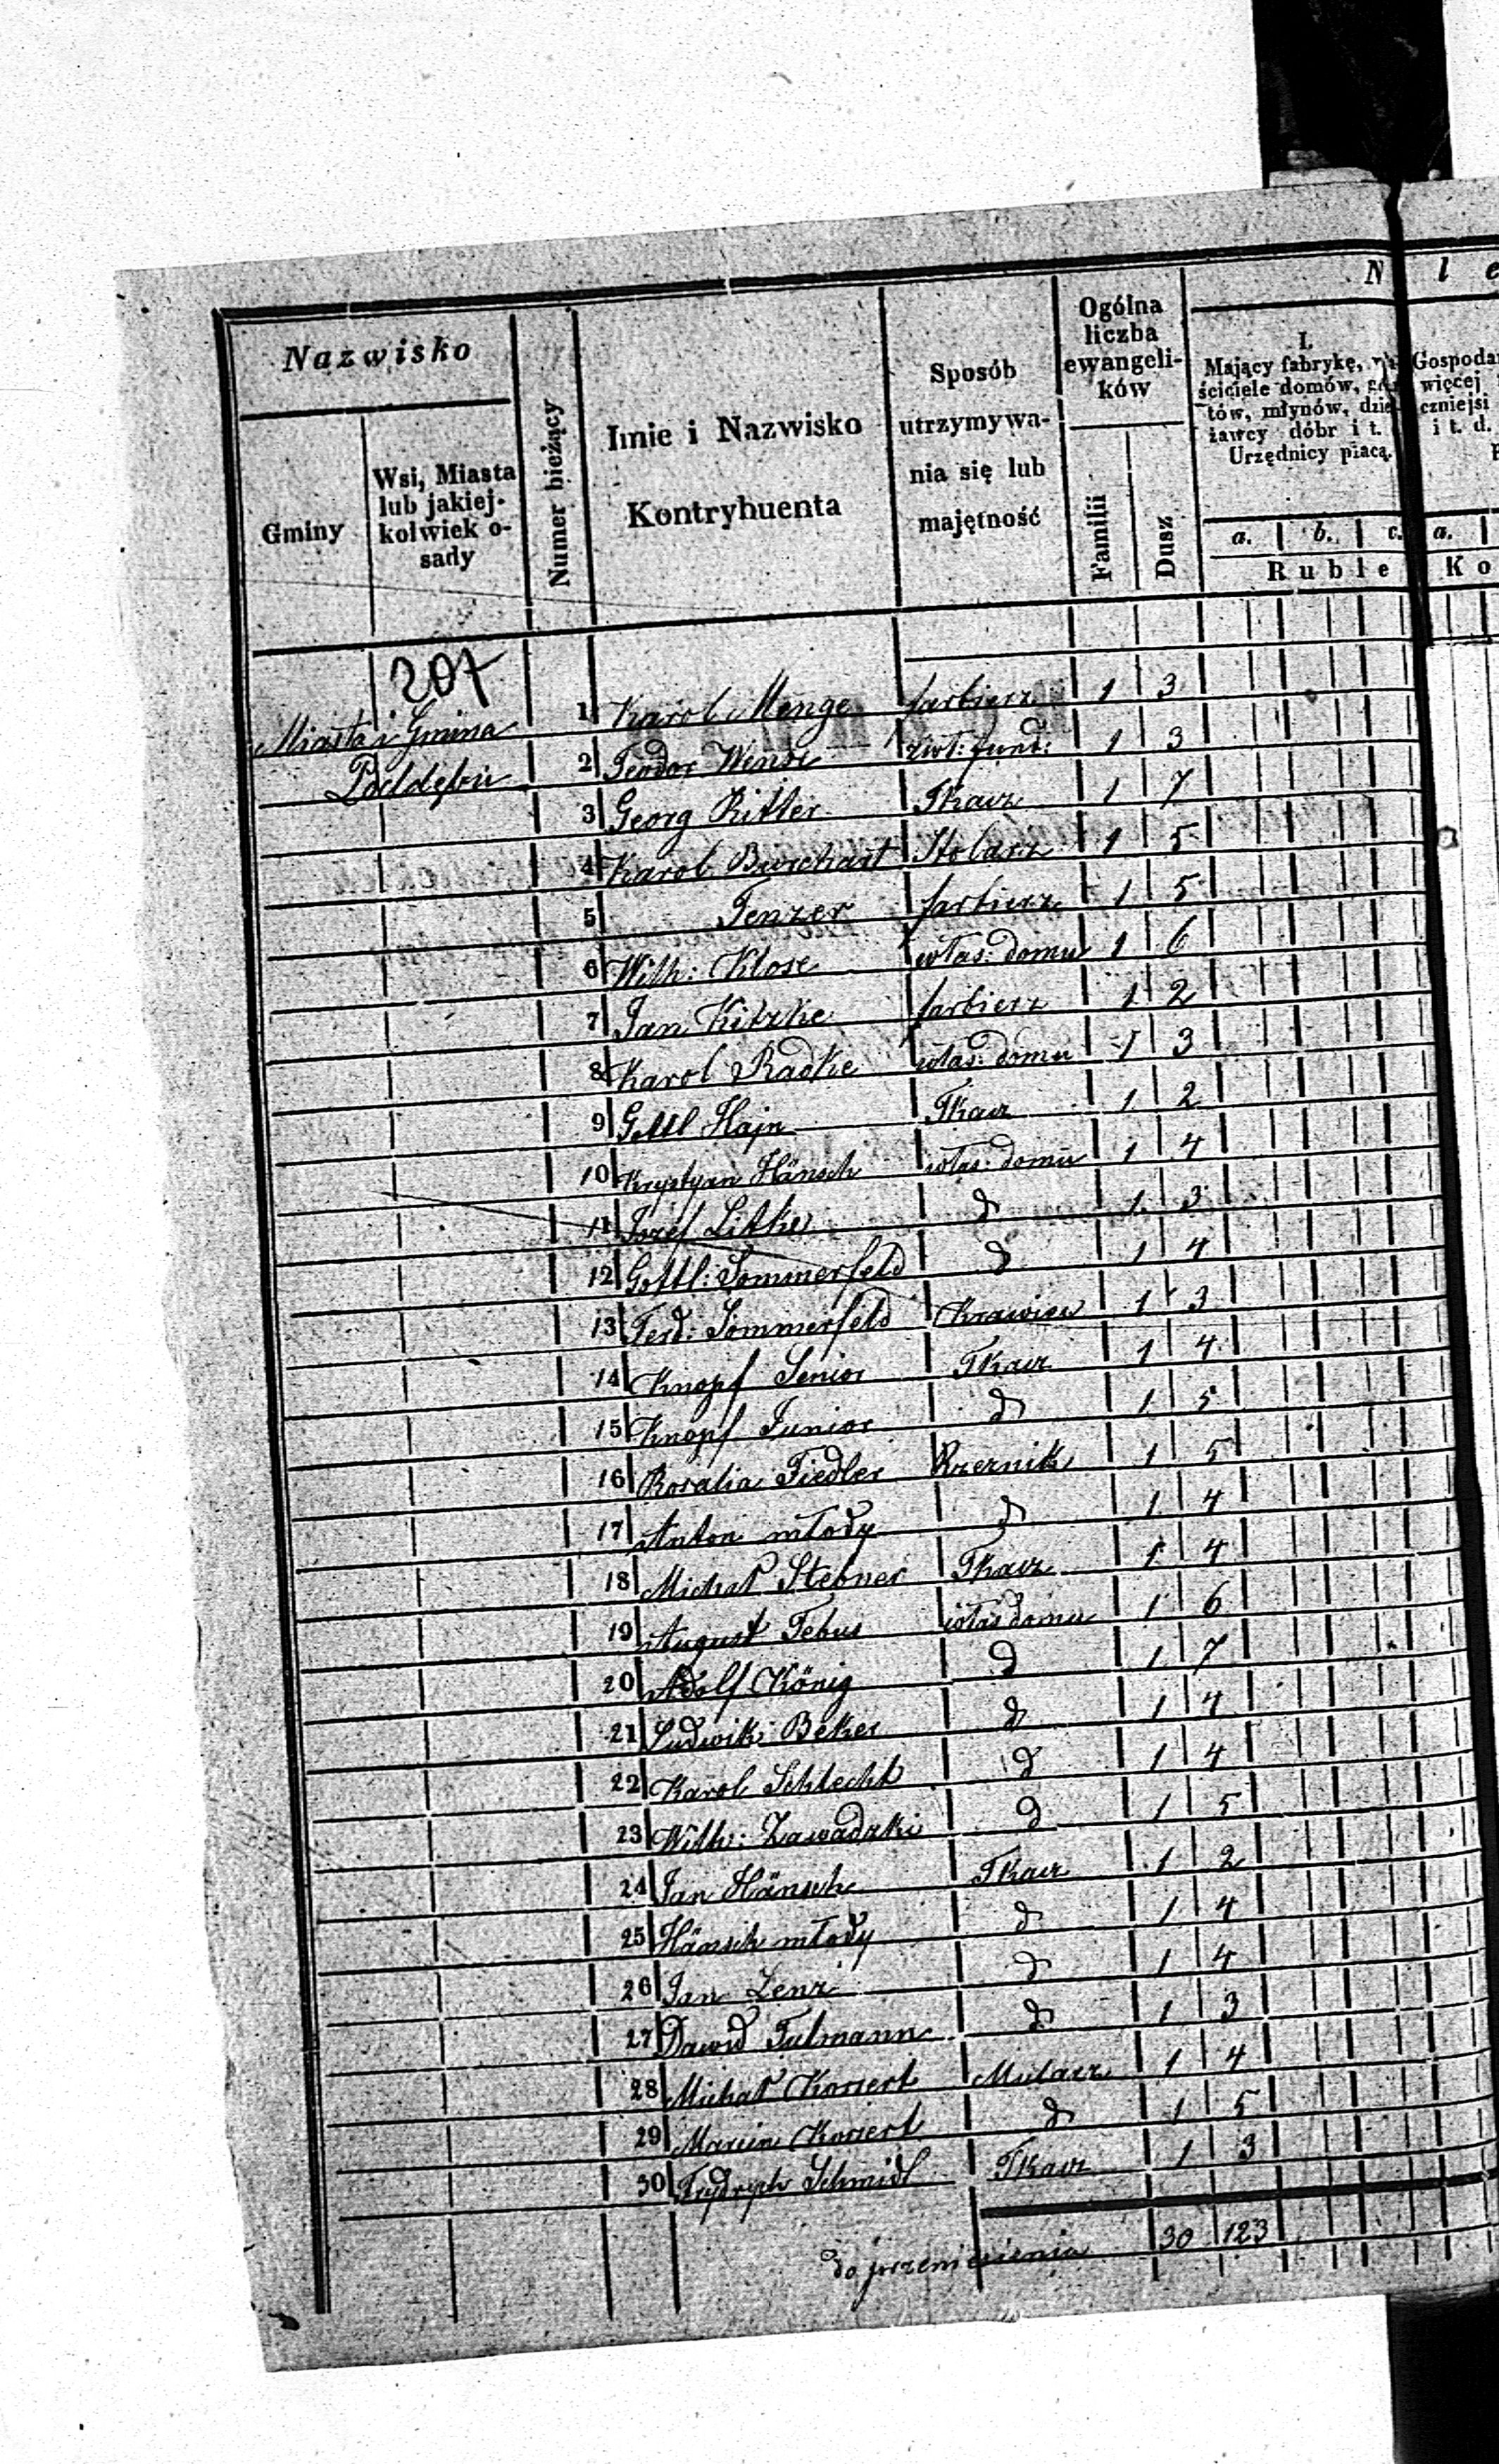 Nazwisko
Gminy
Wsi, Miasta
lub jakiej-
kolwiek o-
sady
Numer bieżący
Imie i Nazwisko
Kontrybuenta
Sposób
utrzymywa-
nia się lub
majętność
Ogólna
liczba
ewangeli-
ków
Familii
Dusz
N l e
I.
Mający fabrykę,
ściciele domów,
tów, młynów, dzier-
żawcy dóbr i t.
Urzędnicy płacą.
Gospodar
więcej
czniejsi
i t. d.
a. b. c. a.
Ruble Ko
207
Miasta i Gmina
Poddębic
1 Karol Menge farbierz 1 3
2 Teodor Wense 1 3
3 Georg Ritter Tkacz 1 7
4 Karol Burchart Stolarz 1 5
5 Tenzer farbierz 1 5
6 Wilh: Klose włas: domu 1 6
7 Jan Kitzke farbierz 1 2
8 Karol Radke włas: domu 1 3
9 Gottl Hajn Tkacz 1 2
10 Krystyan Hänsch włas: domu 1 4
11 Jozef Litke d 1 3
12 Gottl: Sommerfeld d 1 4
13 Ferd: Sommerfeld Krawiec 1 3
14 Knopf Senior Tkacz 1 4
15 Knopf Junior d 1 5
16 Rozalia Fiedler Rzeznik 1 5
17 Anton młody d 1 4
18 Michał Stebner Tkacz 1 4
19 August Tebus włas domu 1 6
20 Adolf König d 1 7
21 Ludwik Beker d 1 4
22 Karol Schlecht d 1 4
23 Wilh: Zawadzki d 1 5
24 Jan Hänsch Tkacz 1 2
25 Hänsch młody d 1 4
26 Jan Lenz d 1 4
27 Dawid Tulmann d 1 3
28 Michał Konert Mularz 1 4
29 Marcin Konert d 1 5
30 Frydrych Schmidl Tkacz 1 3
do przeniesienia 30 123